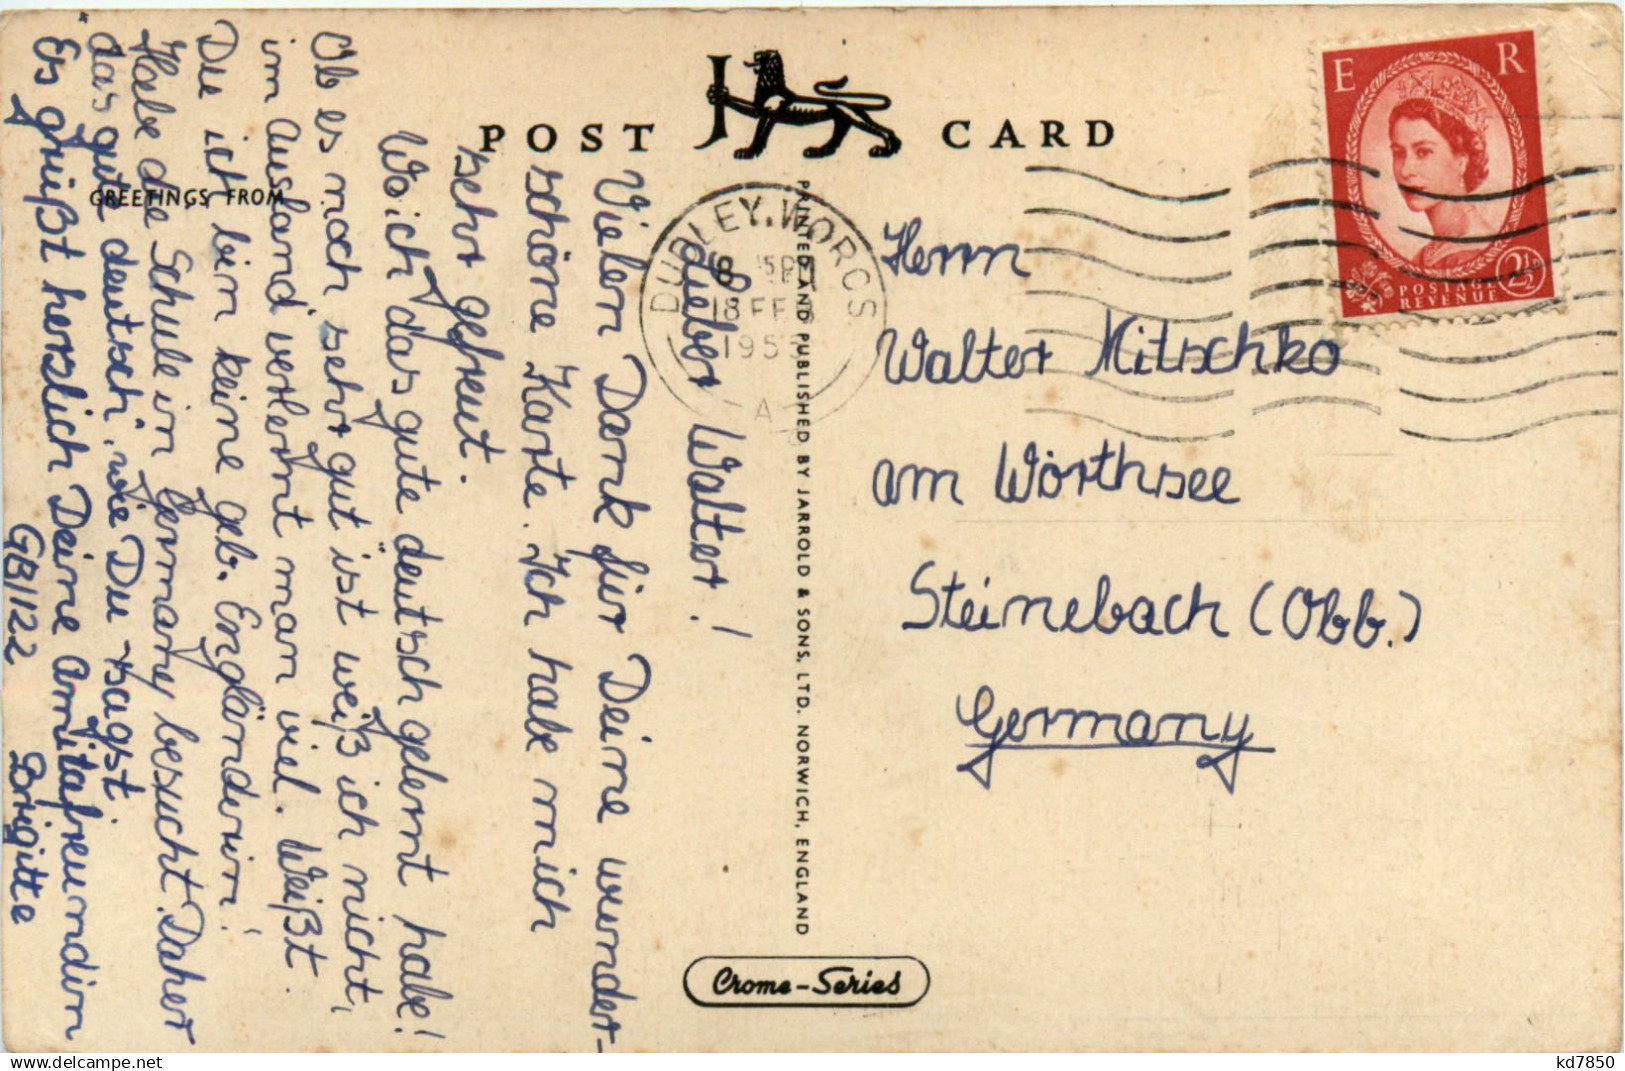 POST CARD
GREETINGS FROM
Lieber Walter!
Vielen Dank für Deine wunder-
schöne Karte. Ich habe mich
sehr gefreut.
Wo ich das gute deutsch gelernt habe!
Ob es noch sehr gut ist weiß ich nicht,
im Ausland verlernt man viel. Weißt
Du ich bin keine geb. Engländerin!
Habe die Schule in Germany besucht. Daher
"das gute deutsch", wie Du sagst
Es grüßt herzlich Deine Amitafreundin
GB/122 Brigitte
PRINTED AND PUBLISHED BY JARROLD & SONS, LTD. NORWICH, ENGLAND
Crome-Series
DUDLEY, WORCS
18 FEB
A
E R
POSTAGE 2½
REVENUE
Herrn
Walter Mitschko
am Wörthsee
Steinebach (Obb.)
Germany
kd7850